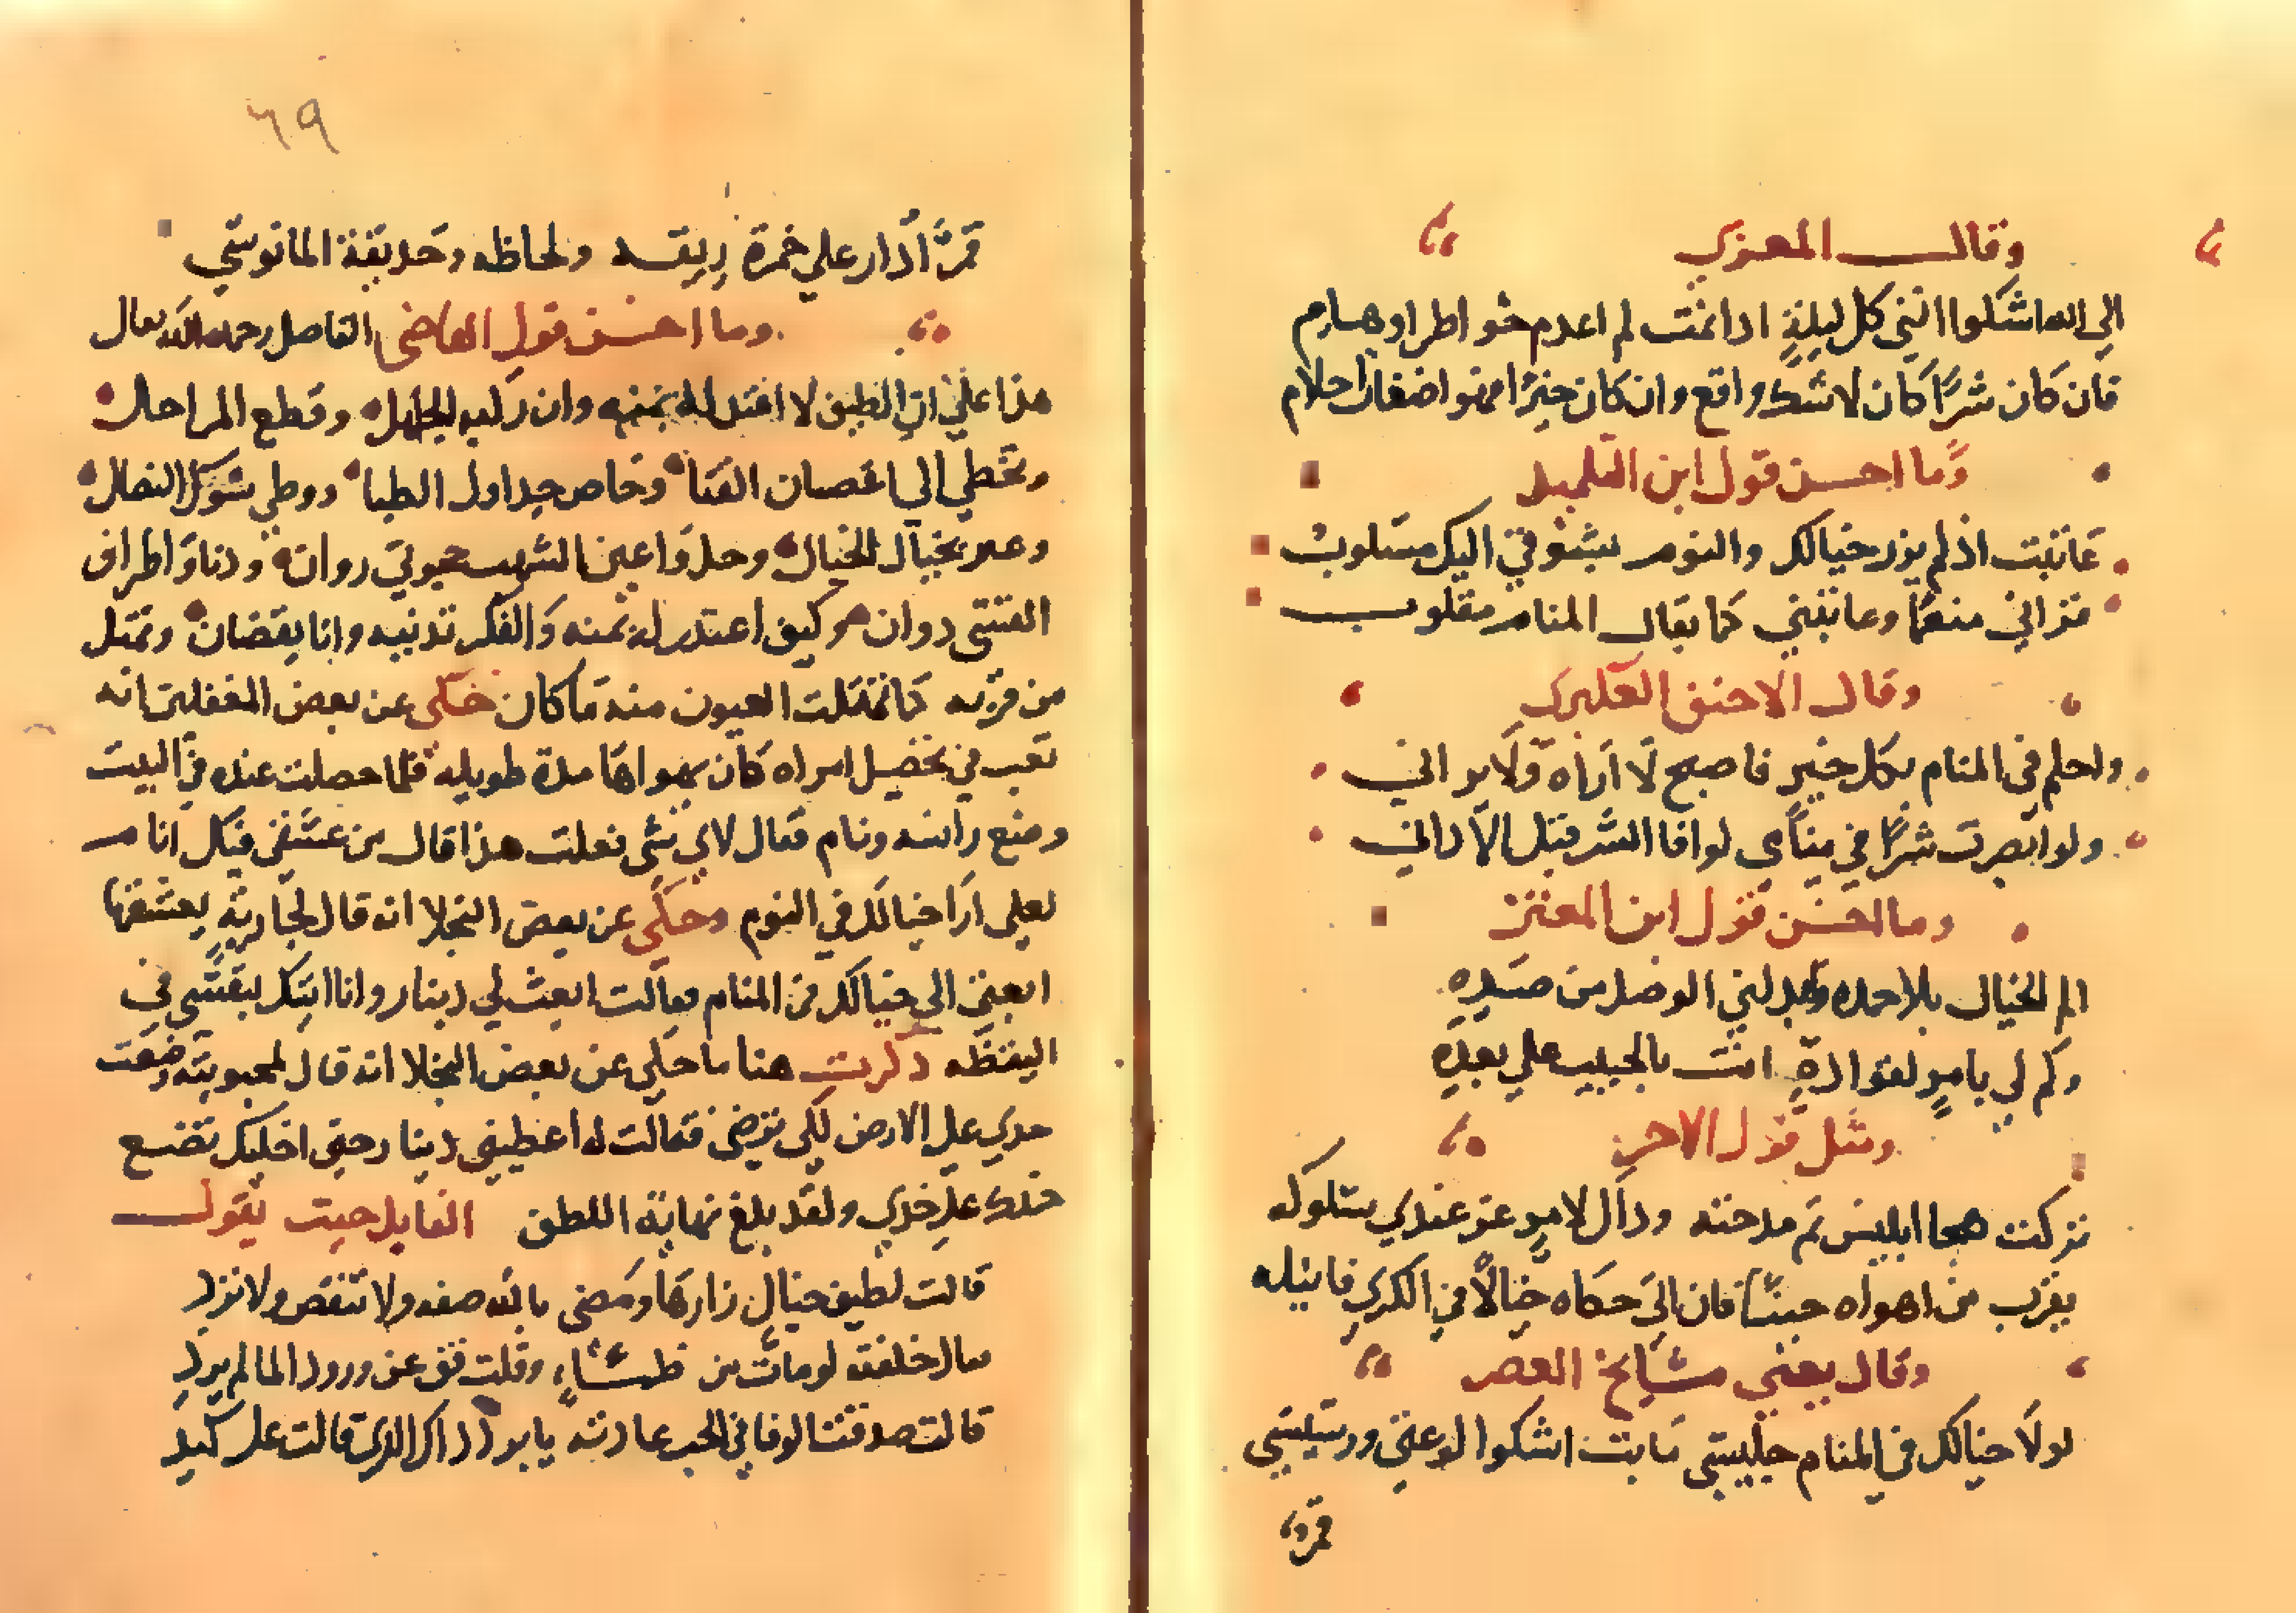 وقال المعري
الى الله اشكوا انني كل ليلة اذا نمت لم اعدم خواطر اوهام
فان كان شرًا كان لاشك واقع وان كان خيرًا فهو اضغاث احلام
وما احسن قول ابن التلميد
عاتبت اذ لم يزر خيالك والنوم بشوقي اليك مسلوب
فزارني منعمًا وعاتبني كما يقال المنام مقلوب
وقال الاحنف العكبري
واحلم في المنام بكل خير فاصبح لا اراه ولا يراني
ولو ابصرت شرًا في منامي لوافا الشر قبل الاداني
وما احسن قول ابن المعتز
الم الخيال بلا حمده وابدلني الوصل من صده
وكم لي يامر لقوادة اتت بالحبيب علي بعده
ومثل قول الاخر
تركت هجا ابليس ثم مدحته وذاك لامر عز عندي سلوكه
يقرب من اهواه حينًا فان ابى حكاه خيالاً في الكرى فانيله
وقال بعض مشايخ العصر
لولا خيالك في المنام جليستي مابت اشكوا لوعتي ورسيستي
قمرًا
٦٩
قمرًا ادار علي خمرة ريقه ولحاظه وحديقة المانوستي
وما احسن قول القاضي الفاضل رحمه الله تعالى
هذا علي ان الطيف لا اعتد له بمنه وان ركب الجاهل وقطع المراحل
وتخطي الي اغصان القنا وخاض جداول الظبا ووطي شوك النصال
وعبر بخيال الخيال وحدوا عين الشهب عيون روان ودنا واطراف
القنى دوان وكيف اعتدر له بمنه والفكر تدنيه وانا يقضان وتمثل
من قربه كما تمثلت العيون منه ما كان حكى عن بعض المغفلين انه
تعب في تحصيل امراه كان يهواها مدة طويله فلما حصلت عنده في البيت
وضع راسه ونام فقال لاي شي فعلت هذا قال من عشقي فيك انام
لعلي ارا خيالك في النوم وحكى عن بعض البخلا انه قال لجارية يعشقها
ابعثي الي خيالك في المنام فقالت ابعث لي دينار وانا اتيك بنفسي في
اليقظه ذكرت هنا ما حكي عن بعض البخلا انه قال لمحبوبته وضعت
خدي على الارض لكي ترضى فقالت له اعطيني دينار حتى اخليك تضع
خدك على خدي ولقد بلغ نهاية اللطف القايل حيت يقول
قالت لطيف خيال زارها ومضى بالله صفه ولا تنقص ولا تزد
فقال خلفته لومات من ظماء وقلت قف عن ورود الما لم يرد
قالت صدقت الوفا في الحب عادته يابرد ذاك الذي قالت على كبد